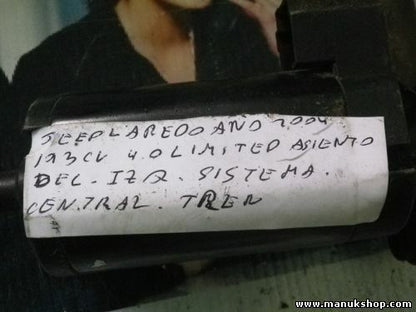 JEEP LAREDO AÑO 2004
193CV 4.0 LIMITED ASIENTO
DEL. IZQ. SISTEMA.
CENTRAL. TREN
www.manukshop.com